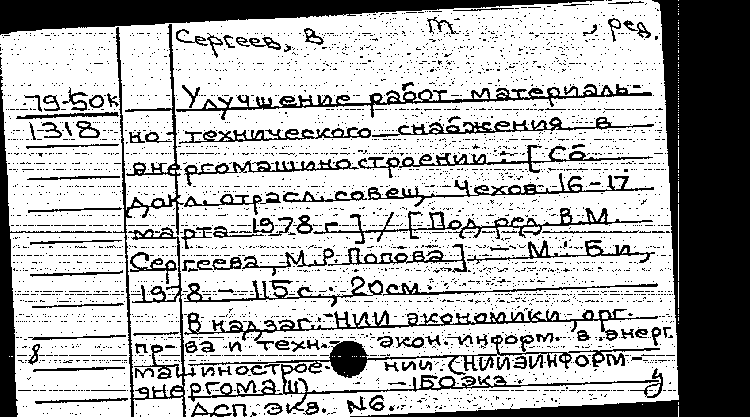 Сергеев, В m , ред.
79-50к
1318
Улучшение работ материаль-
но-технического снабжения в
энергомашиностроении: [Сб.
докл. отрасл. совещ. Чехов 16-17
марта 1978 г.] / [Под ред. В.М.
Сергеева, М.Р. Попова]. - М.: Б.и.,
1978. - 115 с.; 20 см.
В надзаг.: НИИ экономики, орг.
пр-ва и техн.- экон. информ. в энерг.
8
машинострое- нии (НИИЭинформ-
энергомаш). - 150 экз.
АСП. экз. N6.